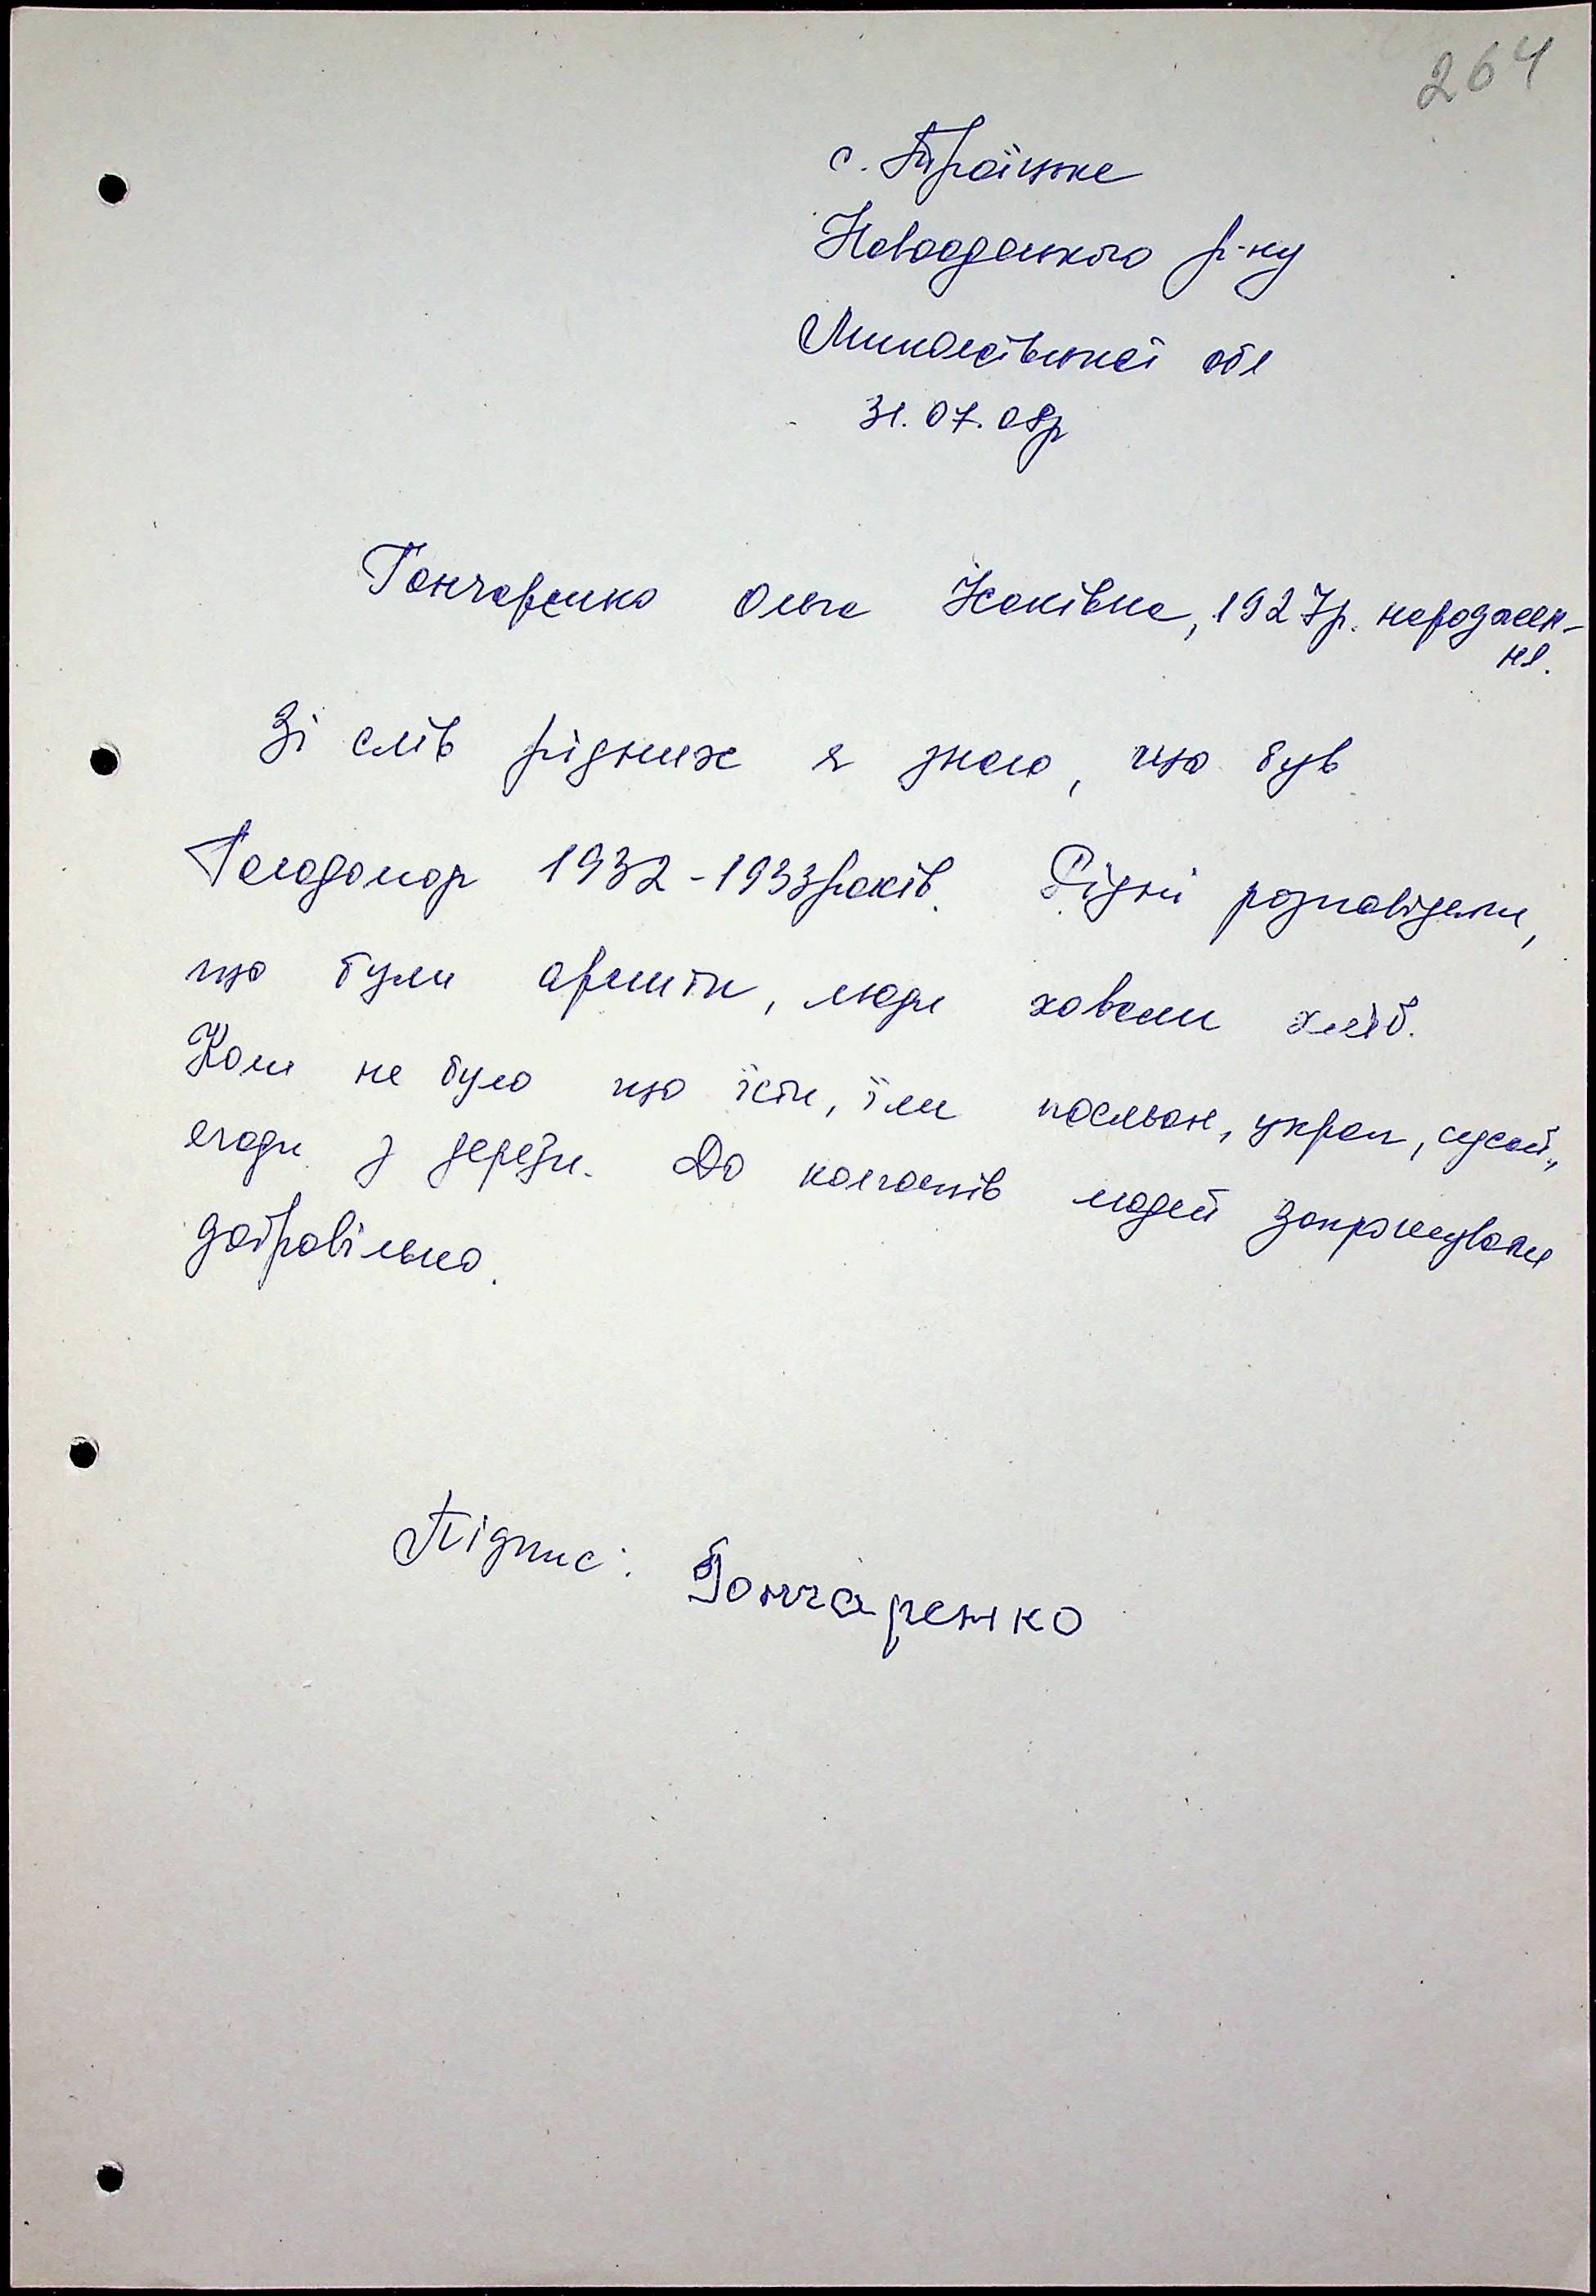 264
с. Троїцьке
Новоодеського р-ну
Миколаївської обл
31.07.08р
Гончаренко Ольга Ісаківна, 1927р. народжен-
ня.
Зі слів рідних я знаю, що був
Голодомор 1932-1933років. Рідні розповідали,
що були арешти, люди ховали хліб.
Коли не було що їсти, їли пасльон, укроп,
ягоди з дерези. До колгоспів людей запрошували
добровільно.
Підпис: Гончаренко